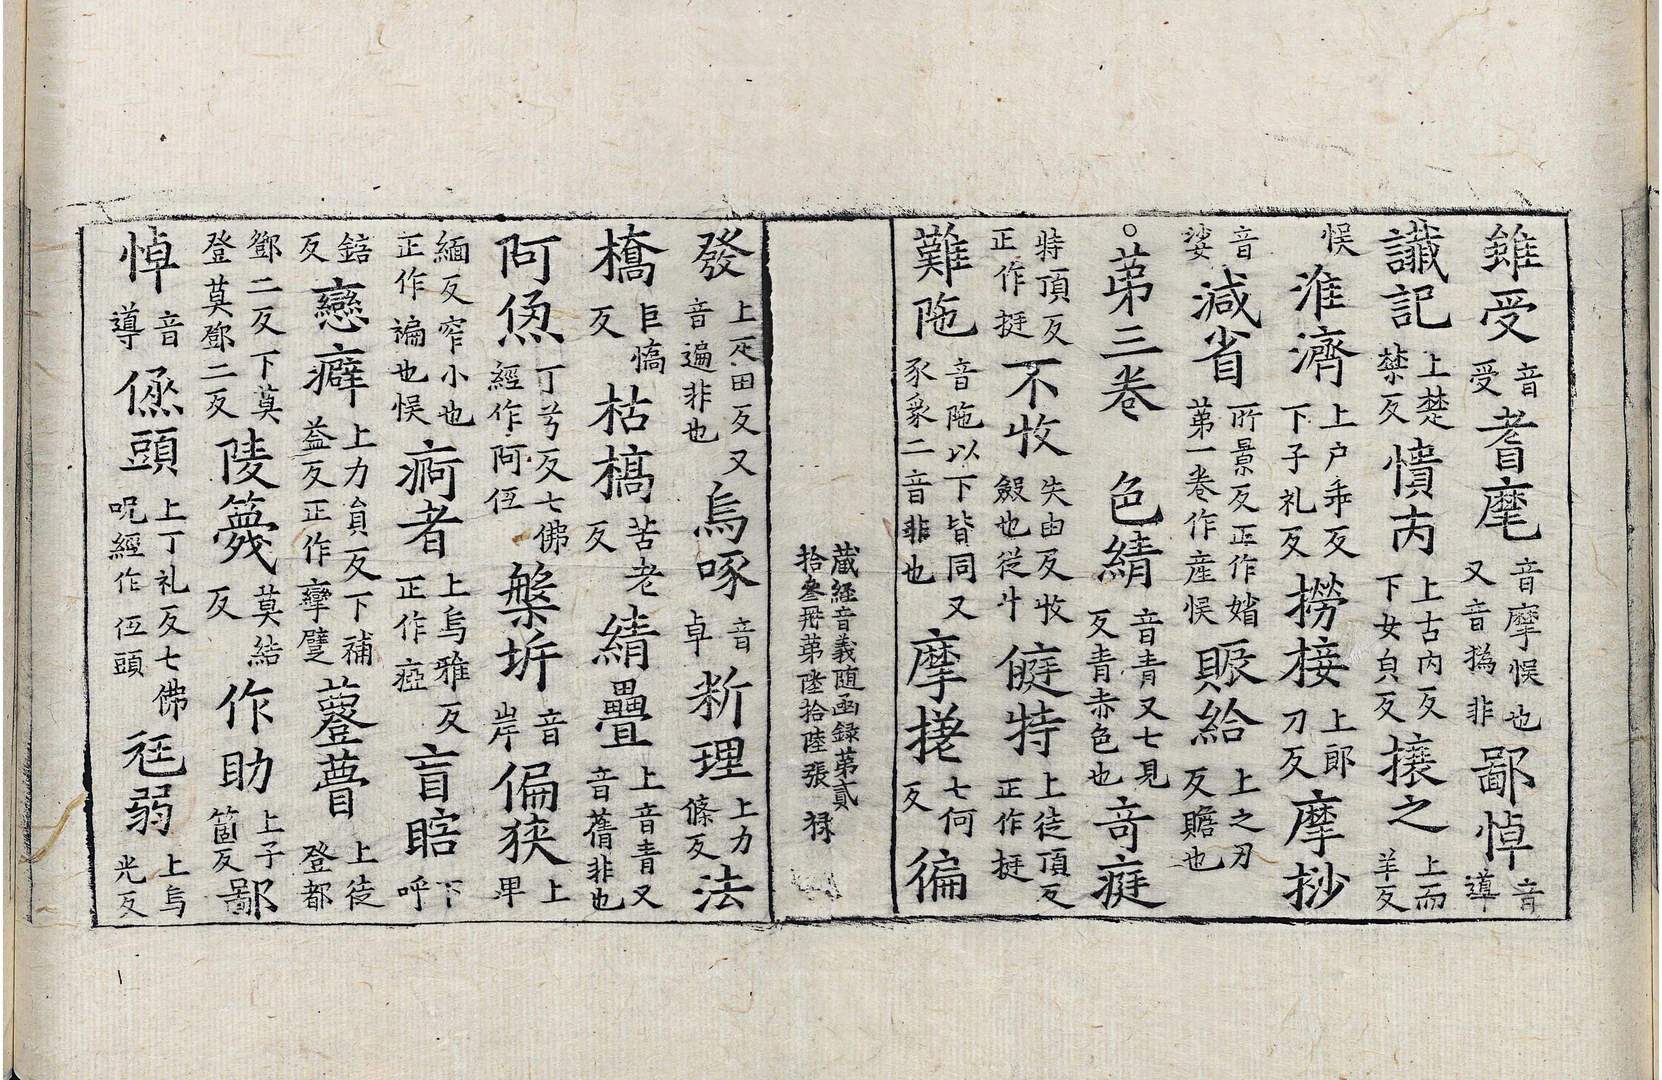 雖受音受耆麾音摩悮也又音㧑非鄙悼音導
讖記上楚禁反憒丙上古内反下女皃反攘之上而羊反
悮淮濟上户乖反下子礼反撈接上郎刀反摩抄
音娑減省所景反正作媘第一卷作産悮賑給上之刃反贍也
○苐三卷 色綪音青又七見反青赤色也奇㾗
特頂反正作挺不收失由反收㲉也從斗㢠特上徒頂反正作挺
難陁音陁以下皆同又豕衆二音非也摩搓七何反徧
蔵經音義随函録苐貳拾叁冊苐陸拾陸張 禄
發上疋田反又音遍非也烏啄音卓断理上力條反法
檋巨憍反枯槁苦老反綪疊上音青又音蒨非也
阿㑽丁兮反七佛經作阿伍槃岓音岸偏狹上卑
緬反窄小也正作褊也悮痾者上烏雅反正作瘂盲瞎下呼
鎋反戀癖上力貟反下補益反正作攣躄蹬瞢上徒登都
鄧二反下莫登莫鄧二反陵篾莫結反作助上子箇反鄙
悼音導㑽頭上丁礼反七佛呪經作伍頭尫弱上烏光反